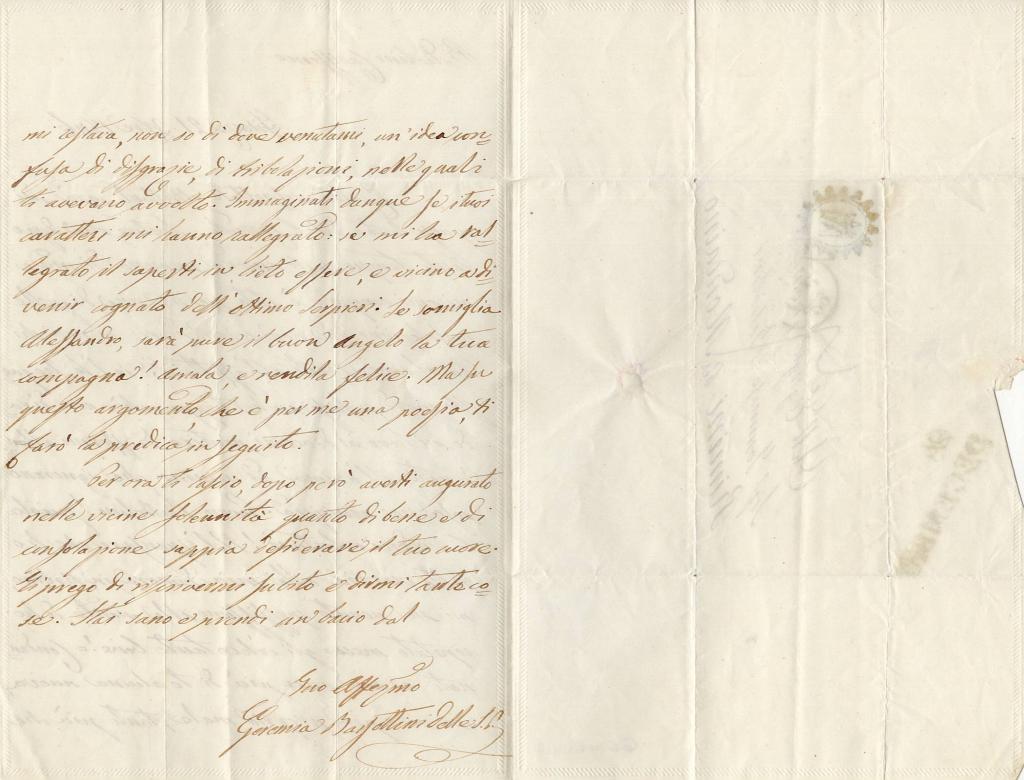 mi restava, non so di dove venutami, un'idea con=
fusa di disgrazie, di tribolazioni, nelle quali
ti avevano avvolto. Immaginati dunque se i tuoi
caratteri mi hanno rallegrato: se mi ha ral=
legrato il saperti in lieto essere, e vicino a di=
venir cognato dell'ottimo Serpieri. Se somiglia
Alessandro, sarà pure il buon angelo la tua
compagna! Amala, e rendila felice. Ma su
questo argomento, che è per me una poesia, ti
farò la predica in seguito.
Per ora ti lascio, dopo però averti augurato
nelle vicine solennità quanto di bene e di
consolazione sappia desiderare il tuo cuore.
Ti prego di riscrivermi subito e dirmi tante co=
se. Stai sano e prendi un bacio dal
Tuo Affezmo
Geremia Barsottini delle S. P.